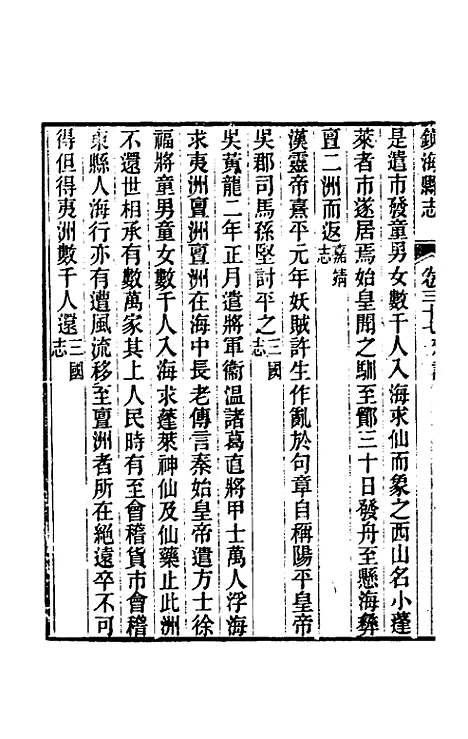 鎮海縣志 卷三十七
是遣市發童男女數千人入海求仙而象之西山名小蓬
萊者市遂居焉始皇聞之馴至鄮三十日發舟至懸海彝
亶二洲而返嘉靖志
漢靈帝熹平元年妖賊許生作亂於句章自稱陽平皇帝
吳郡司馬孫堅討平之三國志
吳黃龍二年正月遣將軍衞溫諸葛直將甲士萬人浮海
求夷洲亶洲亶洲在海中長老傳言秦始皇帝遣方士徐
福將童男童女數千人入海求蓬萊神仙及仙藥止此洲
不還世相承有數萬家其上人民時有至會稽貨市會稽
東縣人海行亦有遭風流移至亶洲者所在絕遠卒不可
得但得夷洲數千人還三國志